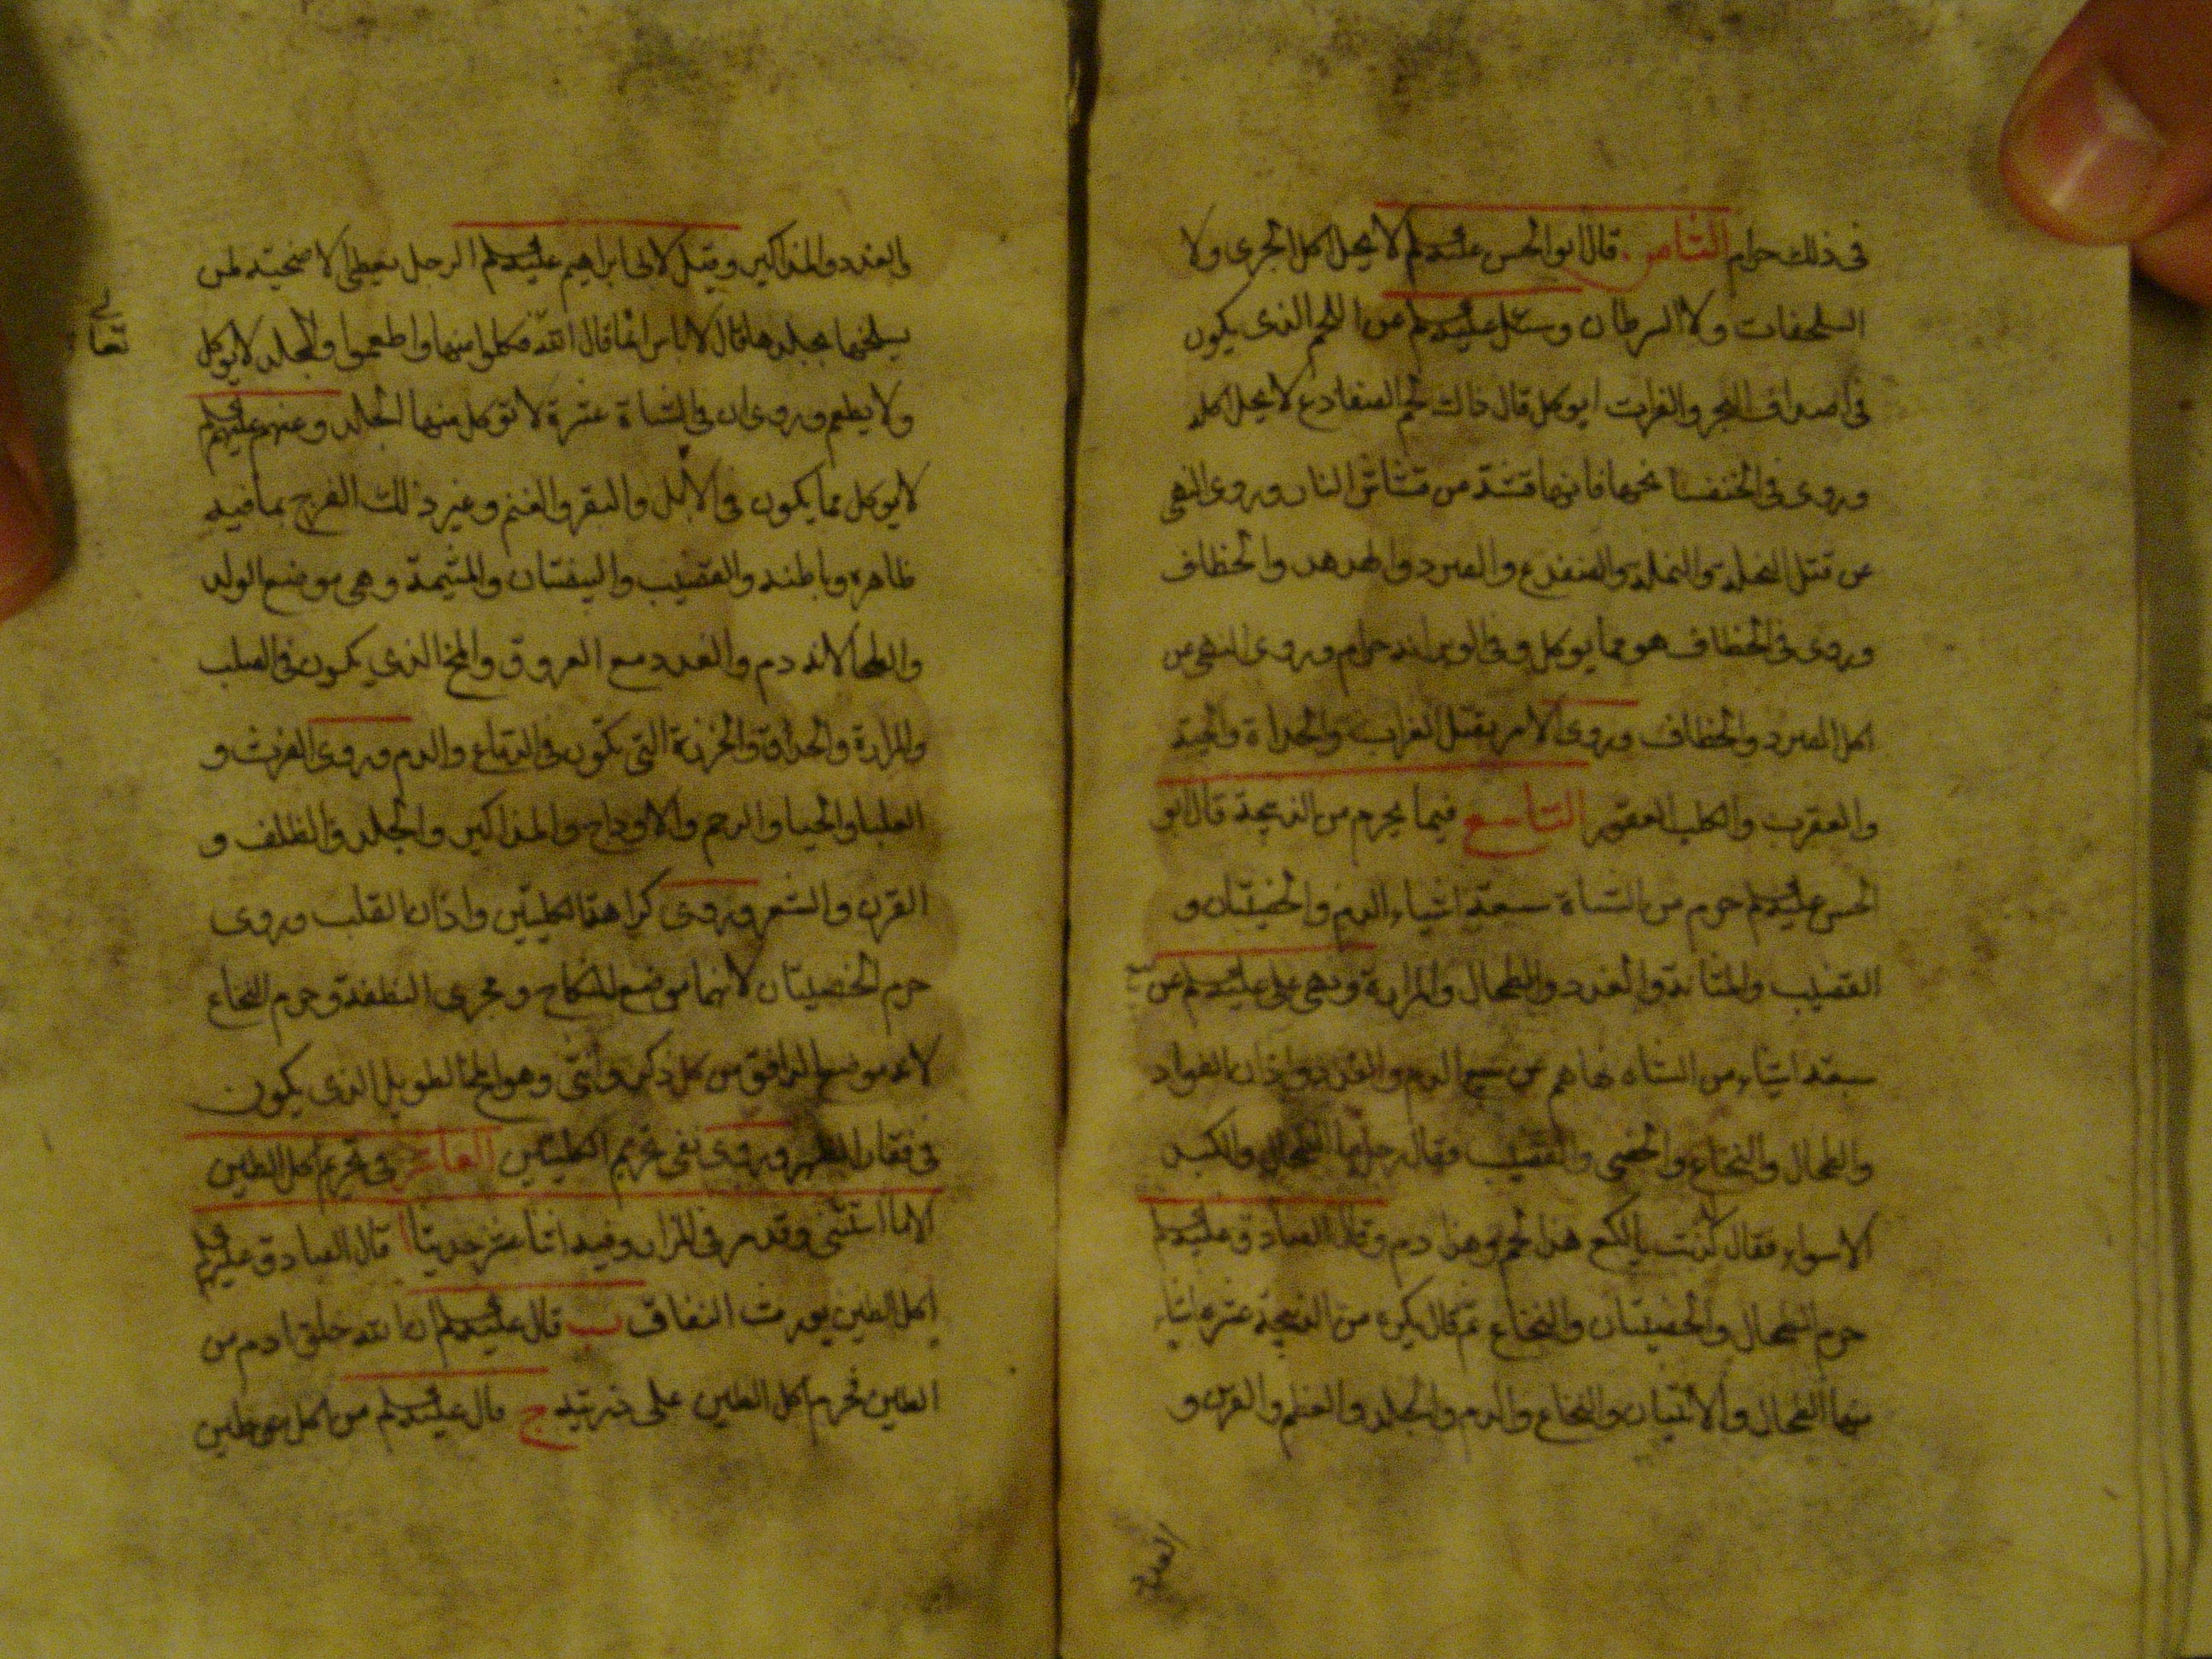 في ذلك حرام الثامن قال ابو الحسن عليه السلم لا يحل اكل الجري ولا
السلحفات ولا السرطان وسئل عليه السلم عن اللحم الذي يكون
في اصداف البحر والفرات ايوكل قال ذالك لحم الضفادع لا يحل اكله
وروى في الخنفسا نحها فانها قشة من قشاش النار وروى النهي
عن قتل النحلة والنملة والضفدع والصرد والهدهد والخطاف
وروى في الخطاف هو مما يوكل وفي الوبر انه حرام وروى النهي عن
اكل الصرد والخطاف وروى الامر بقتل الغراب والحداة والحية
والعقرب والكلب العقور التاسع فيما يحرم من الذبيحة قال ابو
الحسن عليه السلم حرم من الشاة سبعة اشياء الدم والخصيتان و
القضيب والمثانة والغدد والطحال والمرارة ونهى علي عليه السلم عن
سبعة اشياء من الشاه نهاهم عن بيع الدم والغدد واذان الفواد
والطحال والنخاع والخصى والقضيب فقال رجل ما الطحال والكبد
الا سواء فقال كذبت يا لكع هذا لحم وهذا دم وقال الصادق عليه السلم
حرم الطحال والخصيتان والنخاع ثم قال يكره من الذبيحة عشرة اشياء
منها الطحال والانثيان والنخاع والدم والجلد والعظم والقرن و
الغدد
والغدد والمذاكير وقيل لابي ابراهيم عليه السلم الرجل يعطي الاضحية لمن
يسلخها بجلدها قال لا باس انما قال الله فكلوا منها واطعموا والجلد لا يوكل
تعالى
ولا يطعم وروى ان في الشاة عشرة لا توكل منها الجلد وعنهم عليهم السلم
لا يوكل مما يكون في الابل والبقر والغنم وغير ذلك الفرج بما فيه
ظاهره وباطنه والقضيب والبيضتان والمشيمة وهي موضع الولد
والطحال لانه دم والغدد مع العروق والمخ الذي يكون في الصلب
والمرارة والحدقة والخرزة التي تكون في الدماغ والدم وروى الفرث و
العلبا والحيا والرحم والاوداج والمذاكير والجلد والظلف و
القرن والشعر وروى كراهة الكليتين واذان القلب وروى
حرم الخصيتان لانهما موضع للنكاح ومجرى النطفة وحرم النخاع
لانه موضع الدافق من كل ذكر وانثى وهو المخ الطويل الذي يكون
في فقار الظهر وروى نفي تحريم الكليتين العاشر في تحريم اكل الطين
الا ما استثنى وقد مر في المزار وفيه اثنا عشر حديثا ا قال الصادق عليه السلم
اكل الطين يورث النفاق ب قال عليه السلم ان الله خلق ادم من
الطين فحرم اكل الطين على ذريته ج قال عليه السلم من اكل من طين